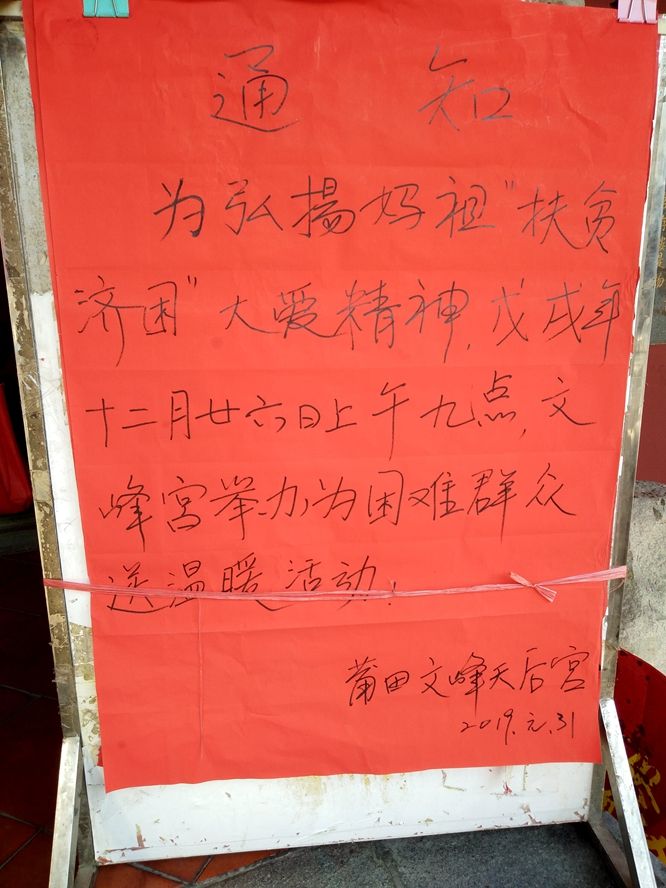 通知
为弘揚妈祖"扶贫
济困"大爱精神,戊戌年
十二月廿六日上午九点,文
峰宫举办为困难群众
送温暖活动!
莆田文峰天后宫
2019.元.31